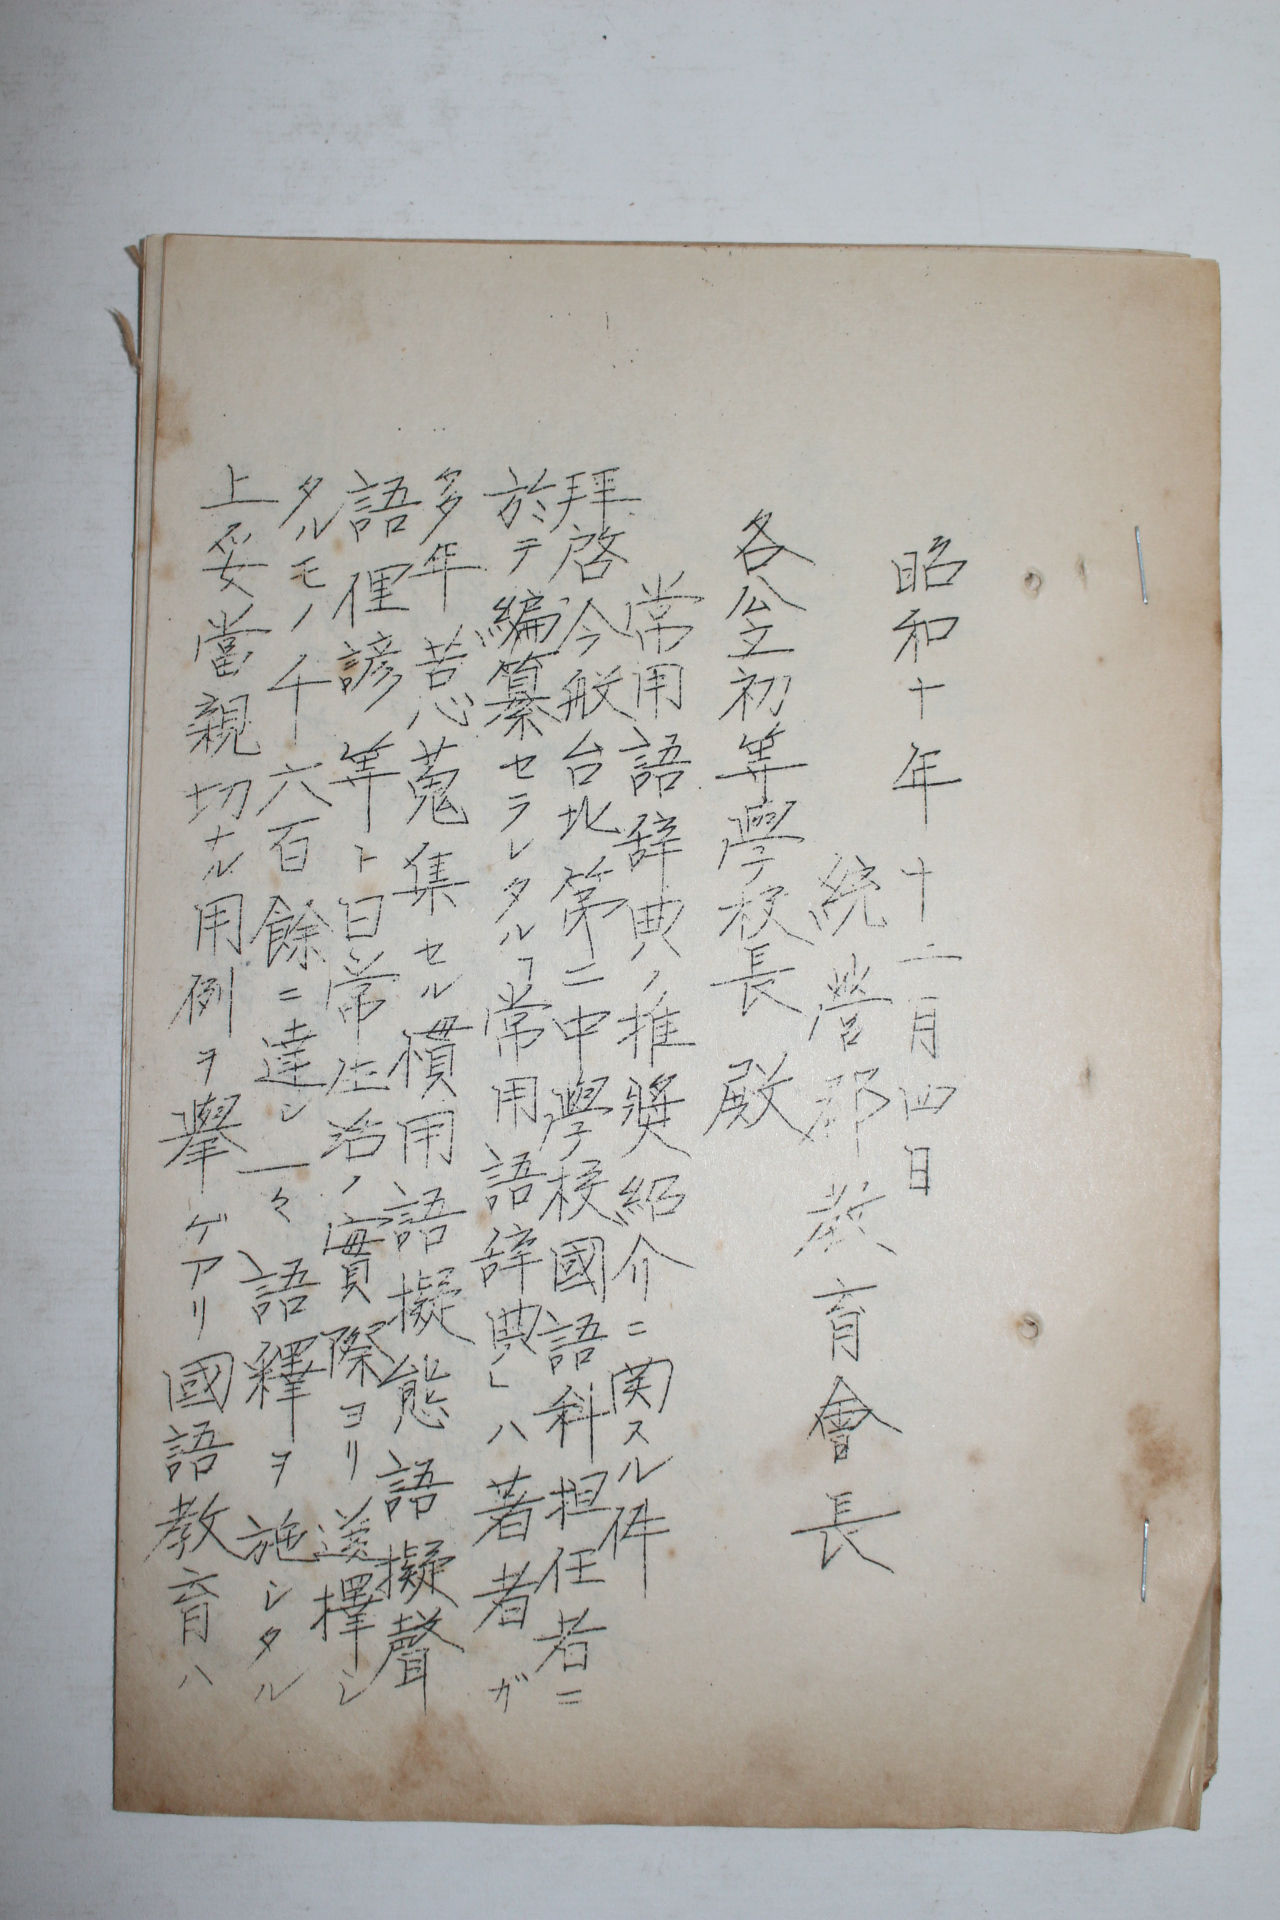 昭和十年十二月四日
統營郡教育會長
各公立初等學校長殿
常用語辞典ノ推奬紹介ニ関スル件
拝啓今般台北第二中學校國語科担任者ニ
於テ編纂セラレタル「常用語辞典」ハ著者ガ
多年苦心蒐集セル慣用語擬態語擬聲
語俚諺等ト日常生活ノ實際ヨリ選擇シ
タルモノ千六百餘ニ達シ一々語釋ヲ施シタル
上妥當親切ナル用例ヲ擧ゲアリ國語教育ハ